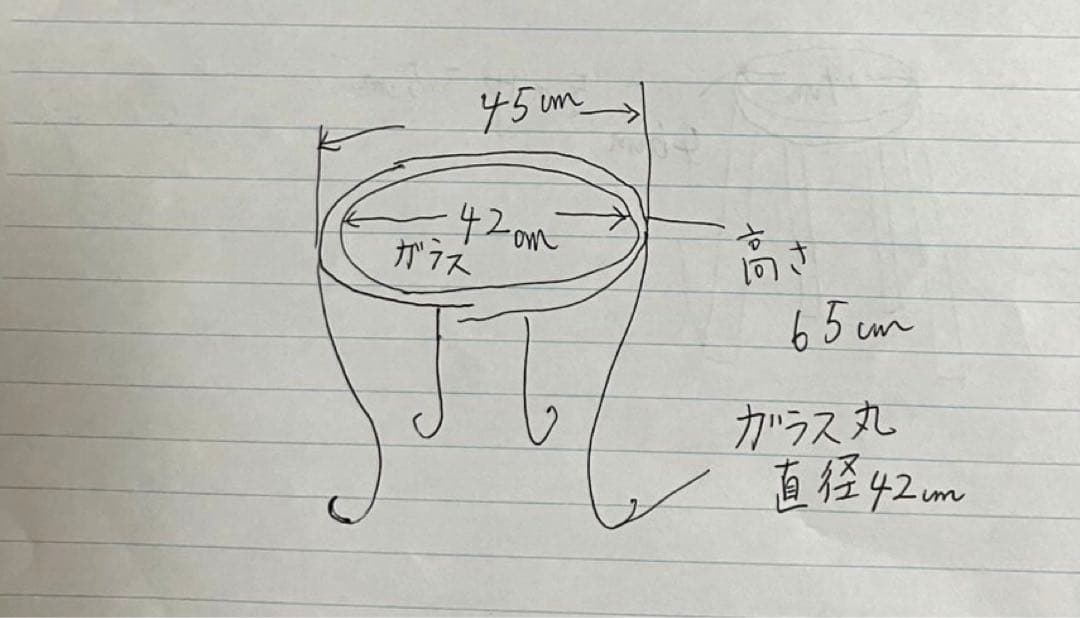 45cm
42cm
ガラス
高さ
65cm
ガラス丸
直径42cm